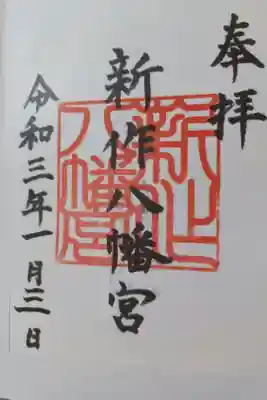 奉拝
新作八幡宮
令和三年一月三日
新作
八幡宮